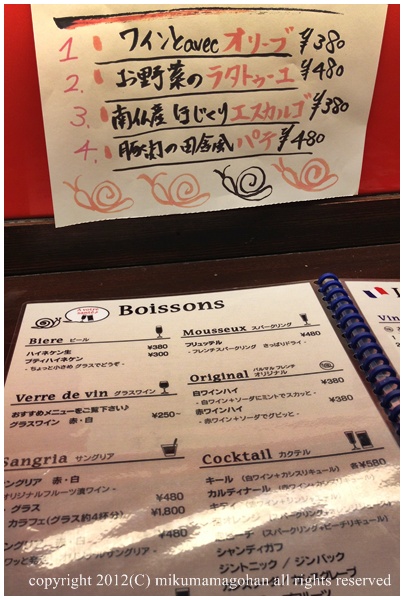 1. ワインとavec オリーブ ¥380
2. お野菜のラタトゥーエ ¥480
3. 南仏産 ほじくりエスカルゴ ¥380
4. 豚肉の田舎風パテ ¥480
Boissons
Biere ビール
ハイネケン生 ¥380
プティハイネケン ¥300
- ちょっと小さめ グラスでどうぞ -
Verre de vin グラスワイン
おすすめメニューをご覧下さい♪
グラスワイン 赤・白 ¥250~
Sangria サングリア
サングリア 赤・白
オリジナルフルーツ漬ワイン -
グラス ¥480
カラフェ(グラス約4杯分) ¥1,800
サングリア 赤・白
Mousseux スパークリング
ブリュッテル ¥480
- フレンチスパークリング さっぱりドライ -
Original パルマル フレンチ オリジナル
白ワインハイ ¥380
- 白ワイン+ソーダにミントでスカッと -
赤ワインハイ ¥380
- 赤ワイン+ソーダでグビッと -
Cocktail カクテル
各¥580
キール (白ワイン+カシスリキュール)
カルディナール
シャンディガフ
ジントニック / ジンバック
Vin
copyright 2012(C) mikumamagohan all rights reserved